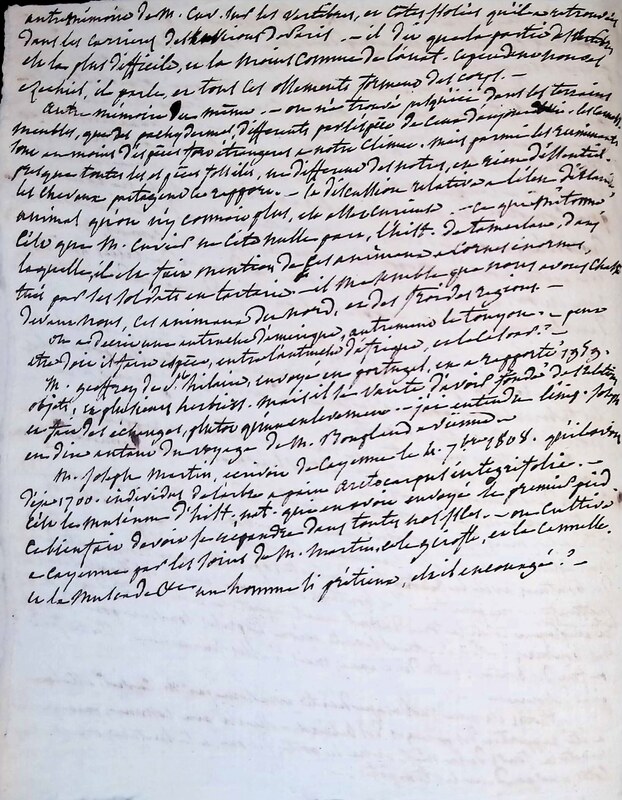 autre mémoire de M. Cuv. sur les vertèbres, et côtes fossiles qu'il a retrouvées
dans les carrières des environs de Paris. — il dit que la partie des
est la plus difficile, et la moins connue de l'ouvr. cependant nouvel
ezechiel, il parle, et tous les ossements forment des corps. —
autre mémoire du même. — on n'a trouvé dans les terrains
meubles, que des pachydermes, différents par l'espèce de ceux d'aujourd'hui. — les
sont au moins d'espèces fort étrangères à notre climat. mais parmi les ruminants
presque toutes les espèces fossiles, ne diffèrent des notres, en rien d'essentiel.
les chevaux partagent ce rapport. — la discussion relative à l'élan d'Irlande
animal qu'on n'y connoit plus, est assez curieuse. — ce qui m'étonne
c'est que M. Cuvier ne cite nulle part, l'hist. de tamerlan, dans
laquelle, il est fait mention de ces animaux à cornes énormes,
tués par les soldats en tartarie. — il me semble que nous avons chassé
devant nous, ces animaux du nord, et des froides régions. —
on a décrit une autruche d'amérique, autrement le touyou. — peut
être doit il faire espèce, entre l'autruche d'afrique, et le casoar? —
M. geoffroy de St. hilaire, envoyé en portugal, en a rapporté
objets, et plusieurs herbiers. mais il se vante d'avoir
et fait des échanges, plutôt qu'un enlèvement. — j'ai entendu l'imp. Joseph
en dire autant du voyage de M. Bonpland a vienne —
M. Joseph Martin, écrivoit de Cayenne le 4. 7bre 1808. qu'il avoit
déja 1700. individus de l'arbre a pain artocarpus integrifolia. —
c'est le muséum d'hist. nat. qui en avoit envoyé le premier pied
ce bienfait devoit se répandre dans toutes nos isles. — on cultive
a cayenne par les soins de M. Martin, et le gerofle, et la cannelle.
et la muscade &c un homme si précieux, est il encouragé? —